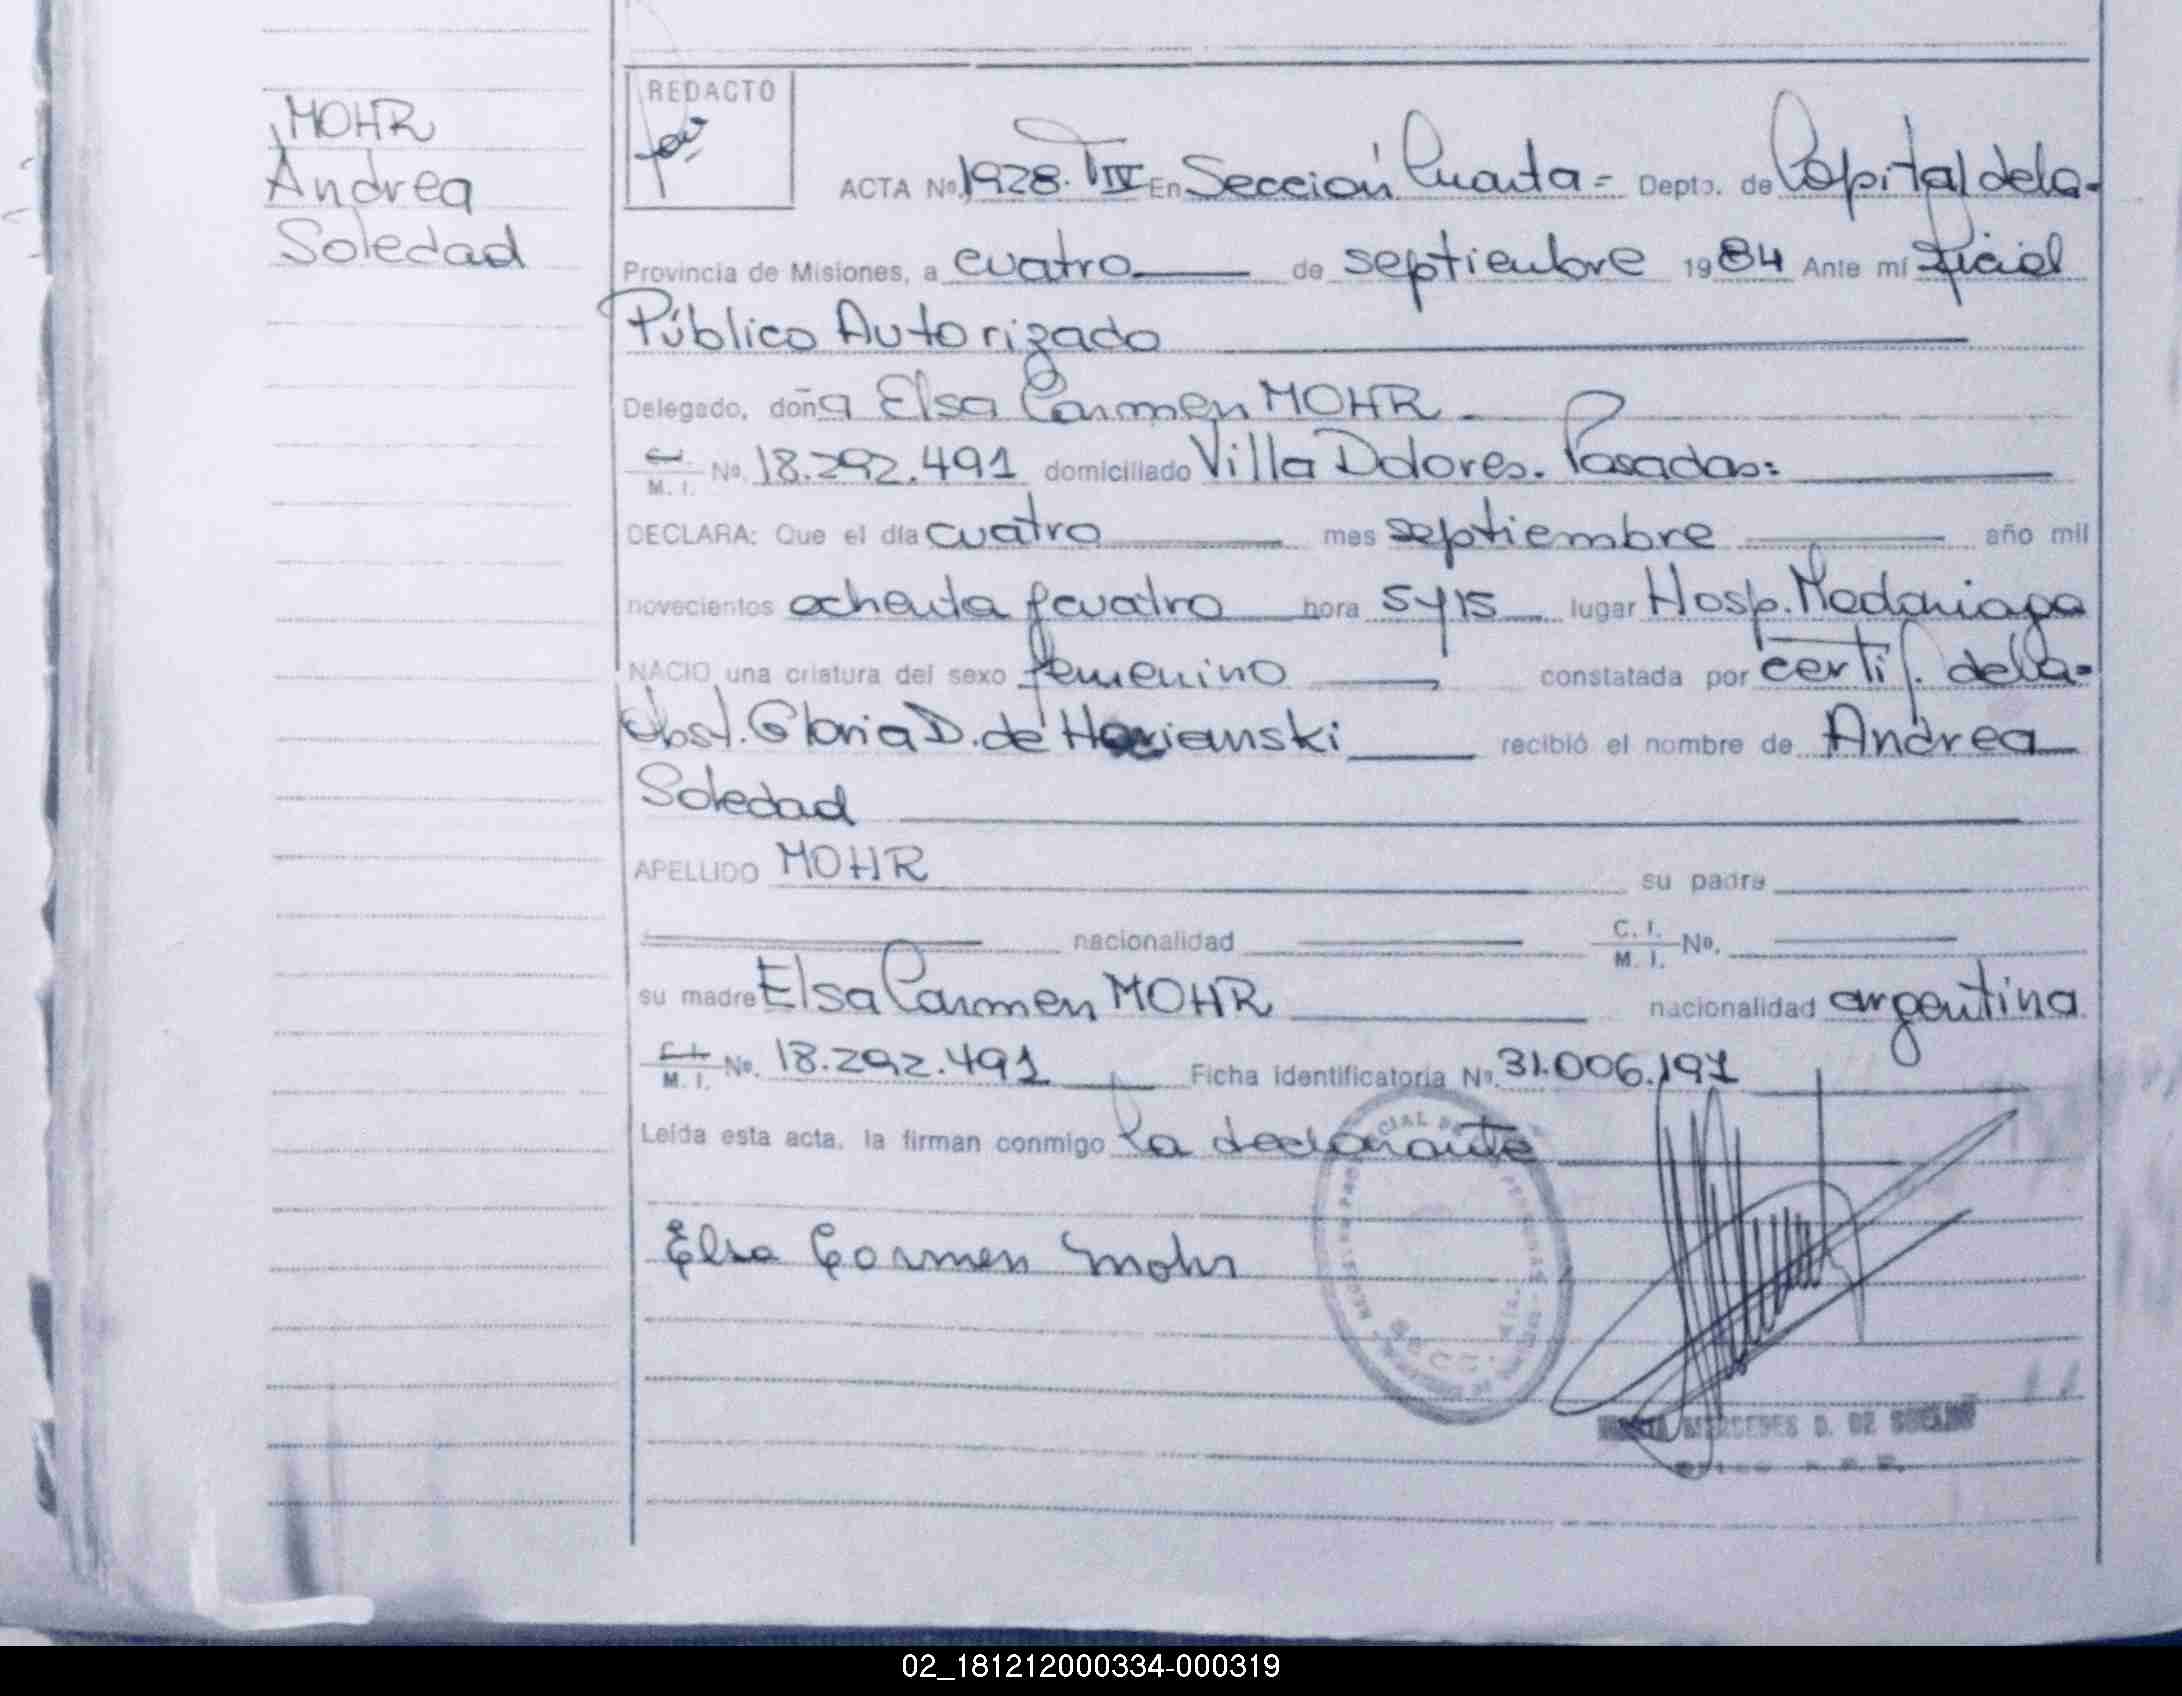 MOHR
Andrea
Soledad
REDACTO
ACTA Nº 1928. T IV En Sección Cuarta = Depto. de Capital de la
Provincia de Misiones, a cuatro de septiembre 1984 Ante mí Oficial
Público Autorizado
Delegado, doña Elsa Carmen MOHR
M. I. Nº 18.292.491 domiciliado Villa Dolores. Posadas:
DECLARA: Que el día cuatro mes septiembre año mil
novecientos ochenta y cuatro hora 5 y 15 lugar Hosp. Madariaga
NACIO una criatura del sexo femenino constatada por certif. de la
Obst. Gloria D. de recibió el nombre de Andrea
Soledad
APELLIDO MOHR su padre
nacionalidad C. I. M. I. Nº.
su madre Elsa Carmen MOHR nacionalidad argentina
C. I. M. I. Nº. 18.292.491 Ficha Identificatoria Nº 31.006.197
Leída esta acta, la firman conmigo la declarante
Elsa Carmen Mohr
MERCEDES D. DE
02_181212000334-000319